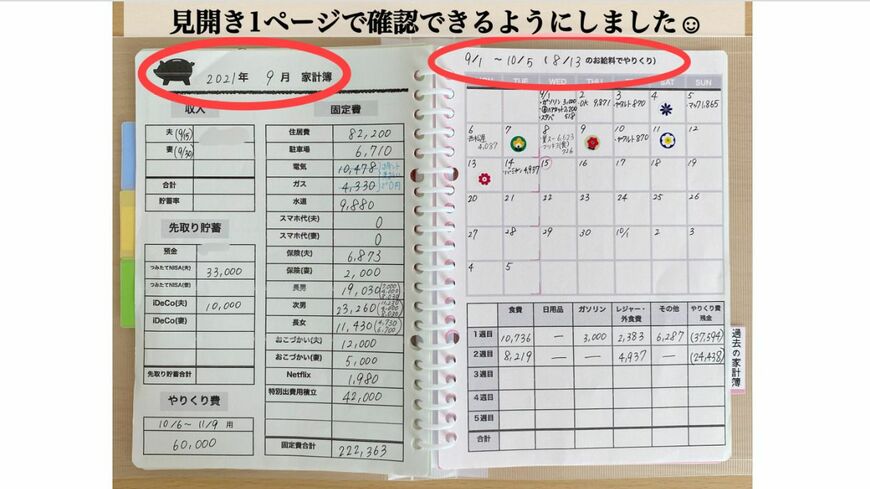 見開き1ページで確認できるようにしました☺
2021年 9月 家計簿
収入
夫(9/15)
妻(9/30)
合計
貯蓄率
先取り貯蓄
預金
つみたてNISA(夫) 33,000
つみたてNISA(妻)
iDeCo(夫) 10,000
iDeCo(妻)
先取り貯蓄合計
やりくり費
10/6〜11/9 用
60,000
固定費
住居費 82,200
駐車場 6,710
電気 10,478
ガス 4,330
水道 9,880
スマホ代(夫) 0
スマホ代(妻) 0
保険(夫) 6,873
保険(妻) 2,000
長男 19,030
次男 23,260
長女 11,430 (4,730 6,700)
おこづかい(夫) 12,000
おこづかい(妻) 5,000
Netflix 1,980
特別出費用積立 42,000
固定費合計 222,363
9/1 〜 10/5 (8/13のお給料でやりくり)
TUE WED THU FRI SAT SUN
9/1 2 3 4 5
・ガソリン 3,000
・OK 9,871
・ヤクルト870
・マック1,865
518
6 7 8 9 10 11 12
・西松屋 4,037
・ヤクルト870
13 14 15 16 17 18 19
・バーミヤン 4,937
20 21 22 23 24 25 26
27 28 29 30 10/1 2 3
4 5
食費 日用品 ガソリン レジャー・外食費 その他 やりくり費残金
1週目 10,736 — 3,000 2,383 6,287 (37,594)
2週目 8,219 — — 4,937 — (24,438)
3週目
4週目
5週目
合計
過去の家計簿